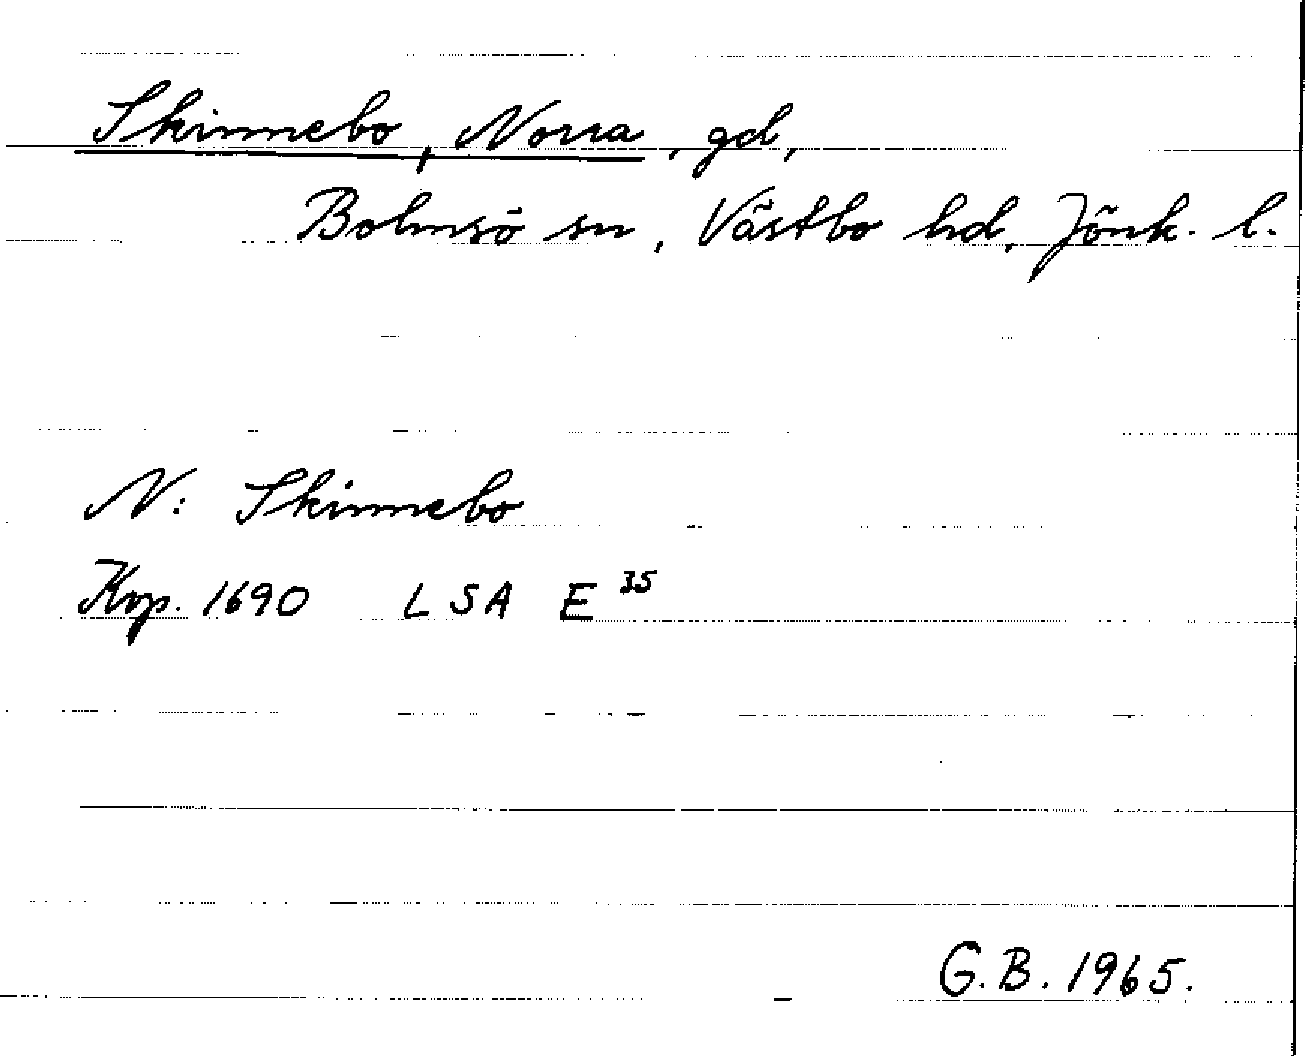 Skinnebo, Norra, gd,
Bolmsö sn, Västbo hd, Jönk. l.
N: Skinnebo
Kop. 1690 LSA E 35
G.B. 1965.